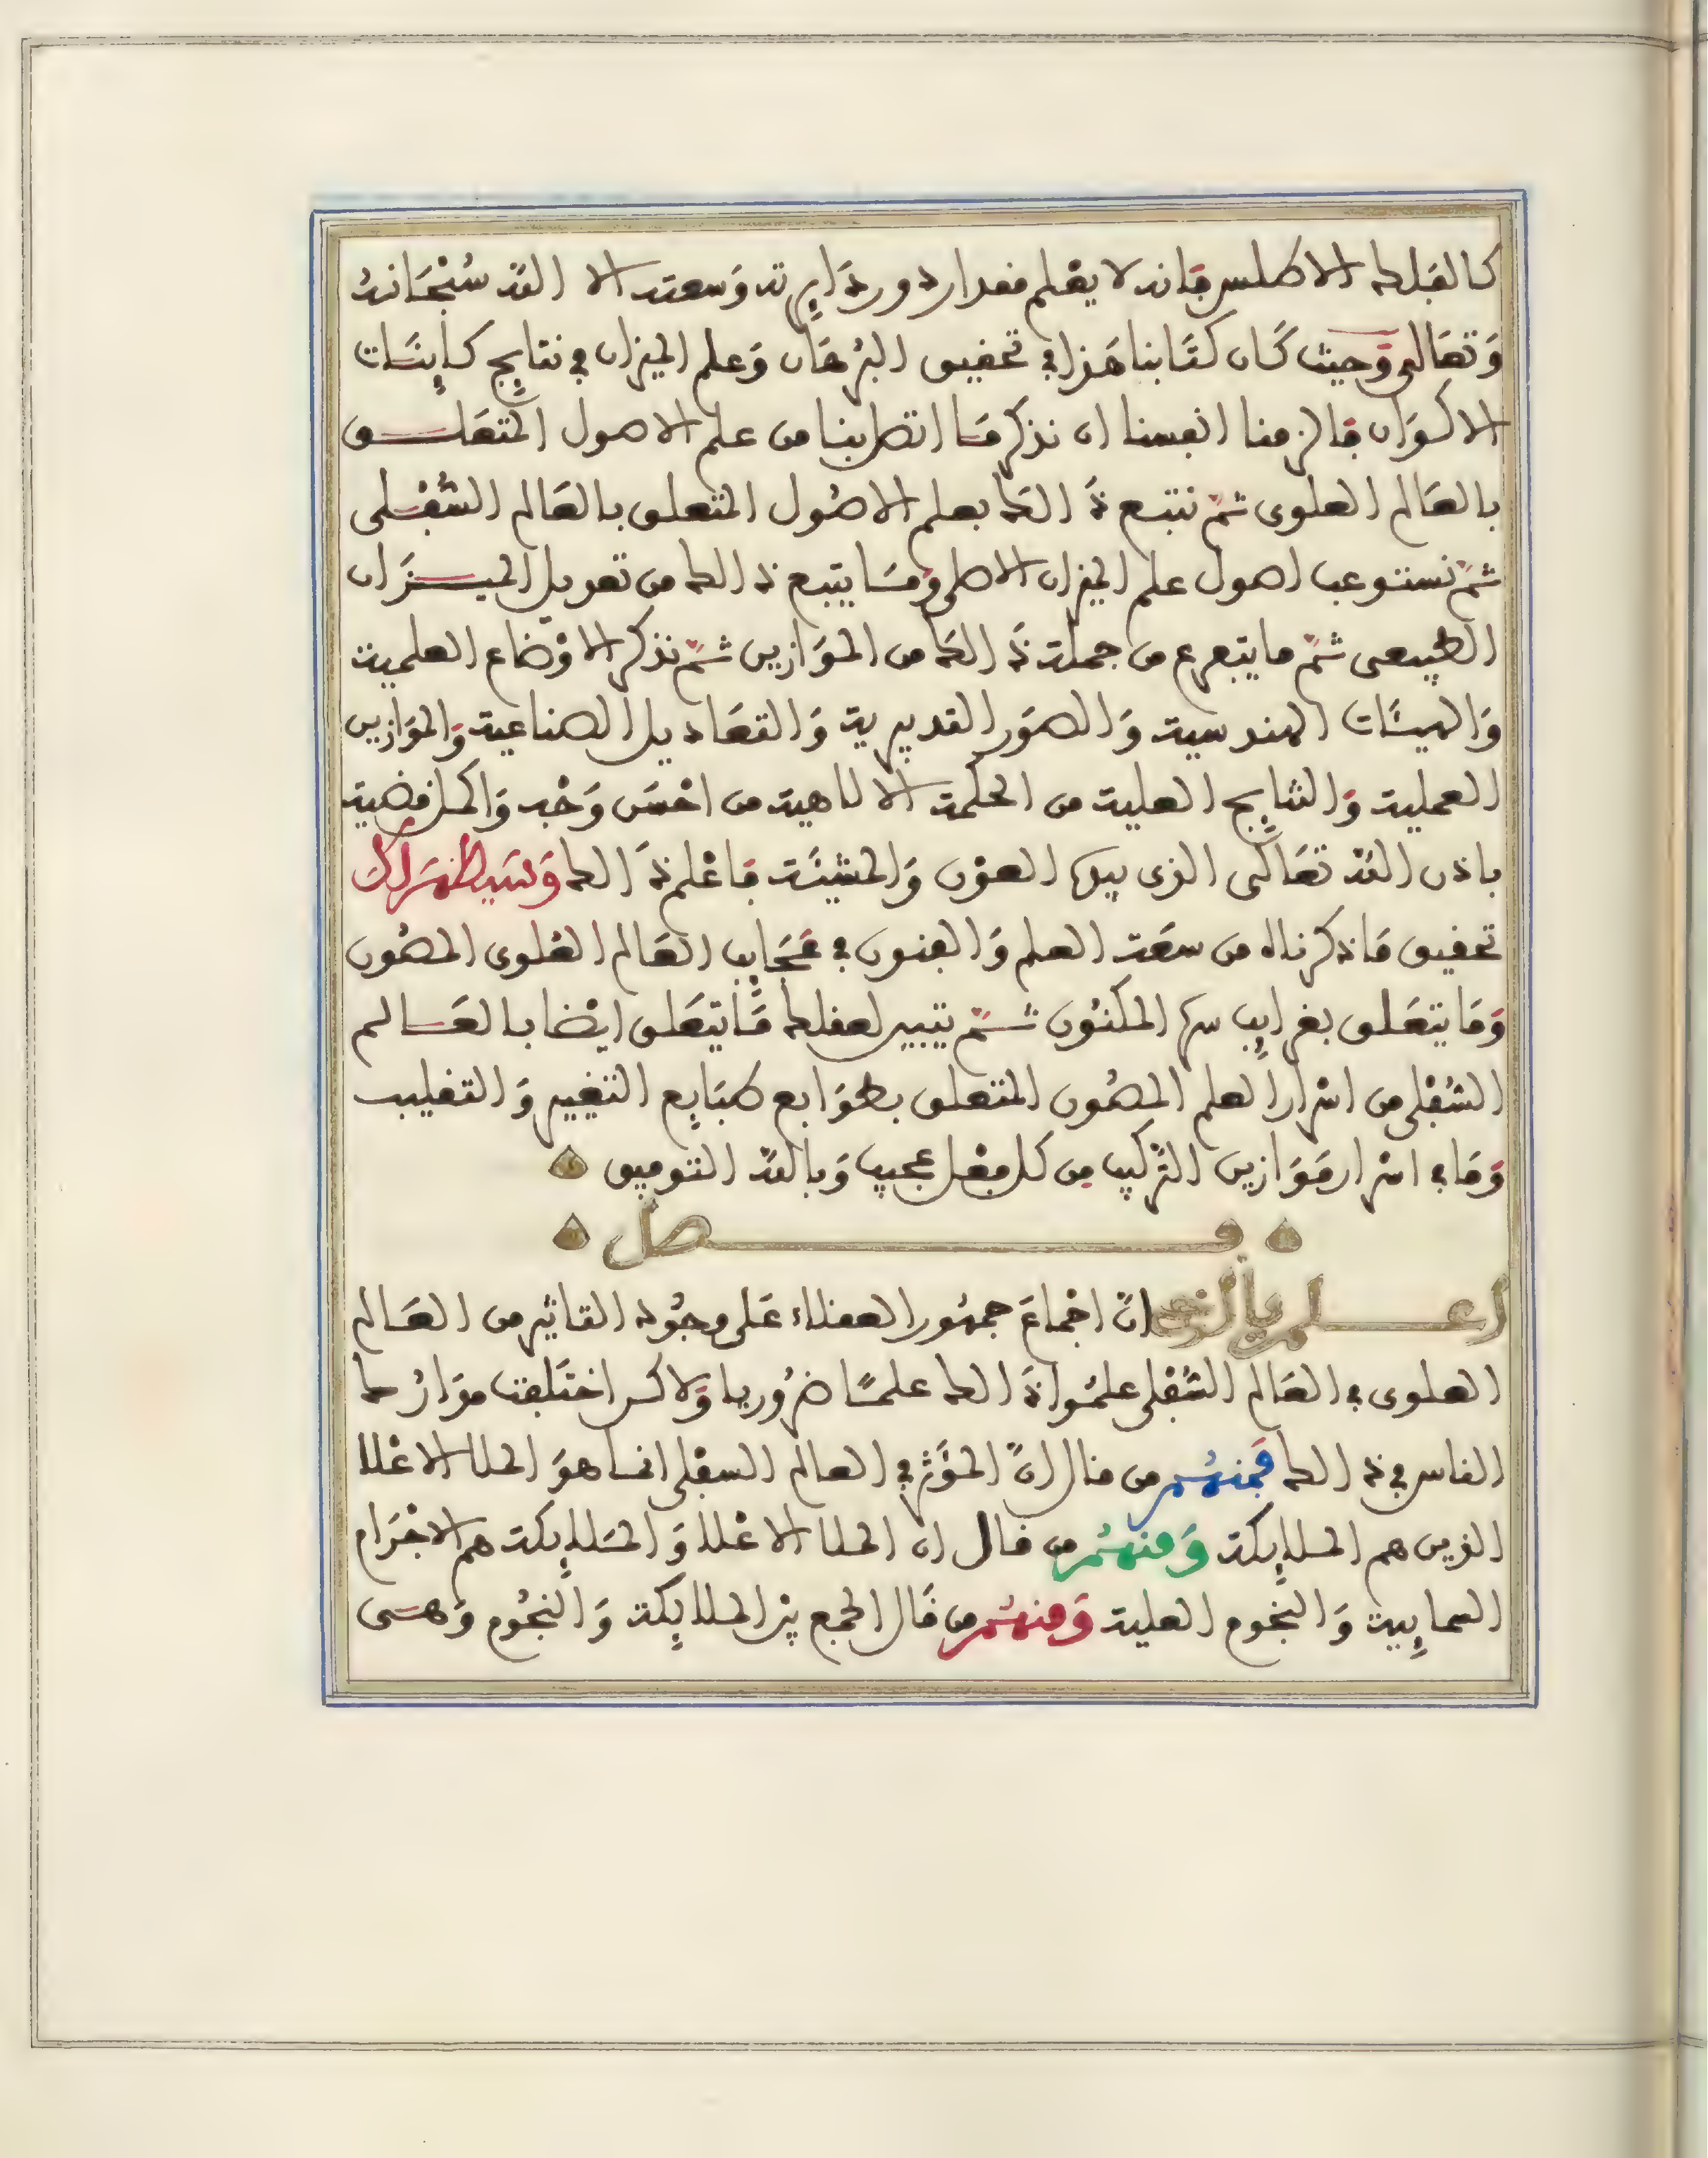 كالفلك الاطلس فانه لا يعلم مقدار دور دايرته وسعته الا الله سُبْحَانهُ
وَتعَالى وَحيث كَان كتَابنا هَذا في تحقيق البُرهَان وَعلم الميزان في نتايج كاينَات
الاكوَان فالزمنا انفسنا ان نذكر مَا اتصل بنا من علم الاصول المتعَلـــق
بالعَالم العلوى ثمّ نتبع ذَالك بعلم الاصُول المتعلق بالعَالم السُّفْـلى
ثمّ نستوعب اصول علم الميزان الاصلى وَمَا يتبع ذالك من تعويل الميــزَان
الطبيعى ثمّ ما يتفرع من جملة ذَالك من الموَازين ثمّ نذكر الاوْضاع العلمية
وَالهيئات الهندسية وَالصوَر التدبيرية وَالتعَاديل الصناعية وَالموَازين
العملية وَالنتايج العلية من الحكمة الالاهية من احْسَن وَجْه وَاكمل قضية
باذن الله تعَالى الذى بيده العوْن وَالمشيئَة فاعْلم ذَالك وَسَيظهَر لك
تحقيق مَا ذكرناه من سعَة العلم وَالفنون في عَجَايب العَالم العُلوى المصُون
وَمَا يتعَلق بغرايب سره المكنُون ثــمّ يتبين لعقلك مَا يتعَلق ايْضا بالعَــالم
السُّفْلى من اسْرار العلم المصُون المتعلق بطوَابع طبَايع التغيير وَالتقليب
وَمَا في اسْرار مَوَازين التّركيب من كل فعْل عجيب وَبالله التوفيق
فـــــصل
اعـــلم يا اخى انّ اجْماعَ جمهُور العقلاء عَلى وجُود التاثير من العَـالم
العلوى في العَالم السُّفْلى علمُوا ذَالك علمًـا ضرُوريا وَلاكن اختَلفت موَارُ ك
الناس في ذالك فَمنهُـم من قال انّ المؤَثر في العالم السفْلى انمـا هوَ الملا الاعْلا
الذين هم المـلايكة وَمنهُـم من قال ان الملا الاعْلا وَالمَلايكة هم الاجْرَام
السمايية وَالنجوم العلية وَمنهُـم من قَال الجمع بيْن الملايكة وَالنجُوم وَهـى